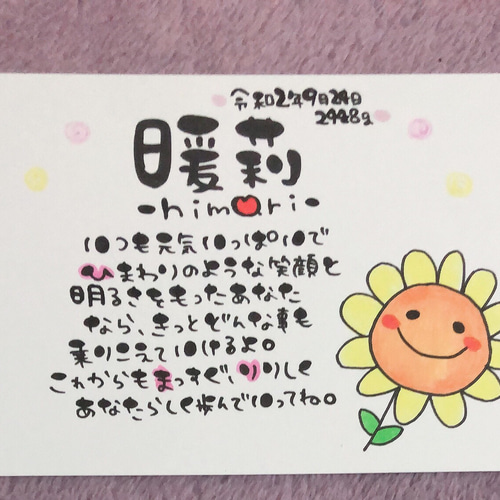 令和2年9月24日
2448g
暖莉
-himari-
いつも元気いっぱいで
ひまわりのような笑顔と
明るさをもったあなた
なら、きっとどんな事も
乗りこえていけるよ。
これからもまっすぐ、りりしく
あなたらしく歩んでいってね。